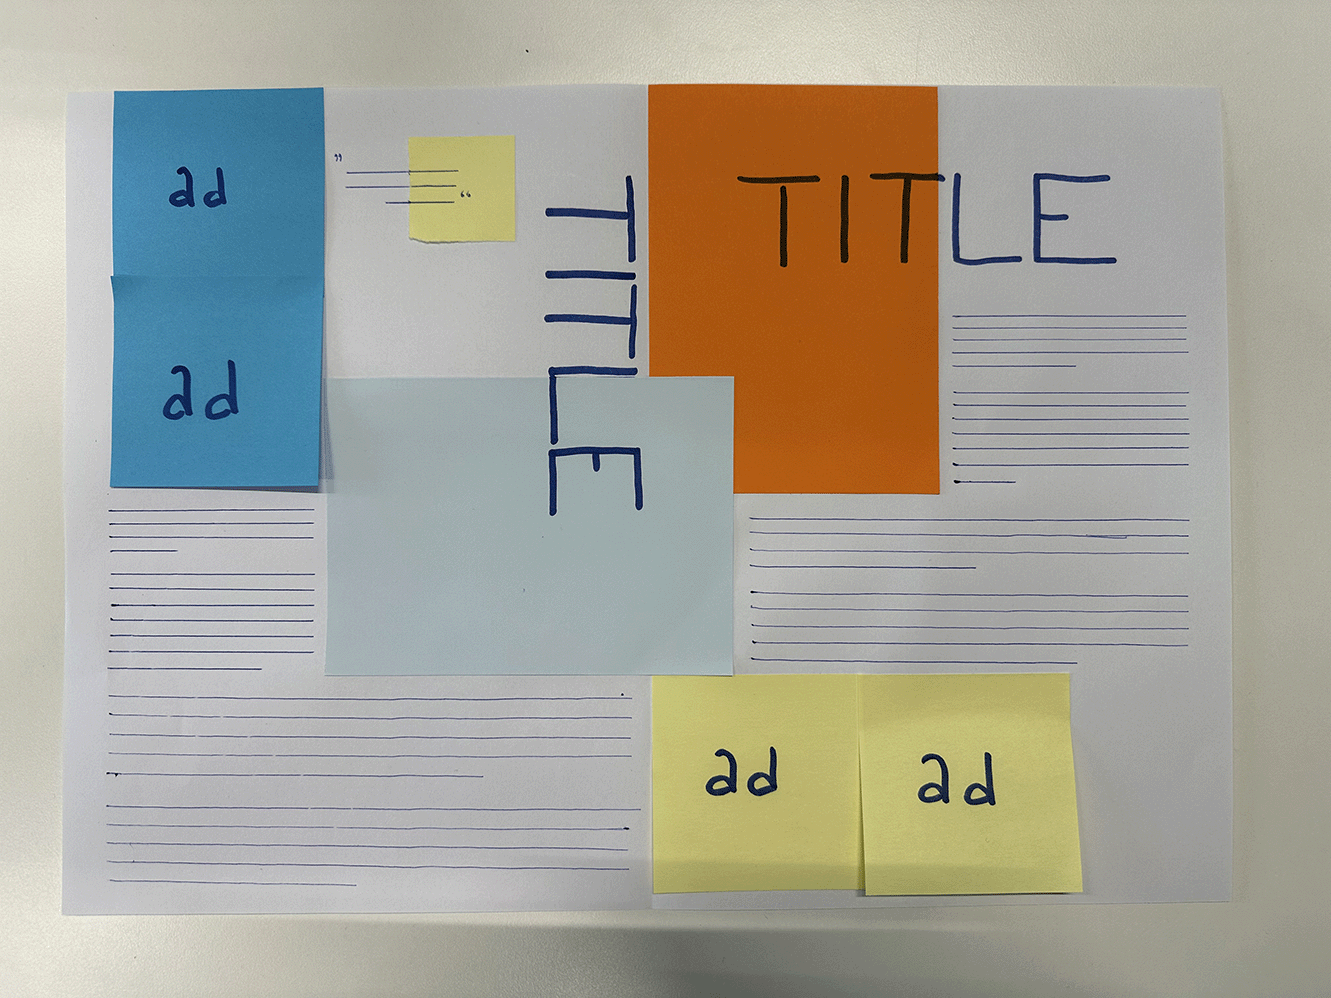 ad
ad
”
“
TITLE
TITLE
ad
ad